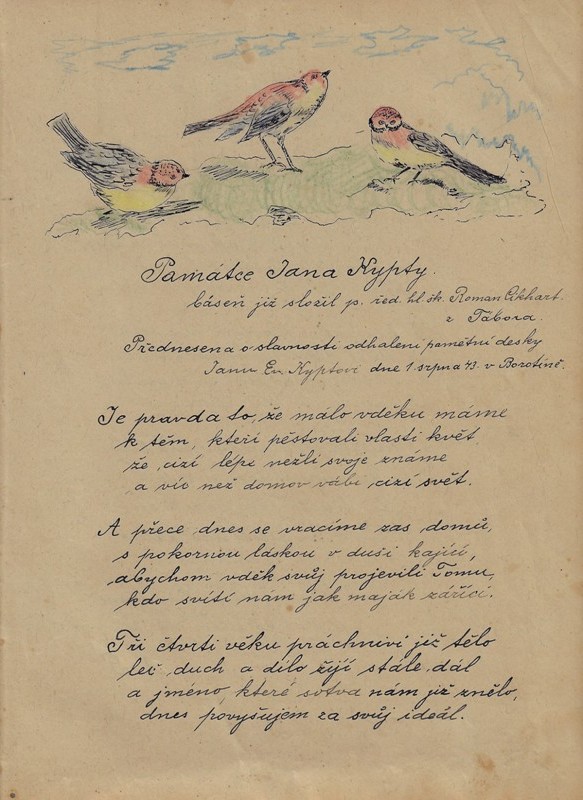 Památce Jana Kypty.
báseň již složil p. řed. hl. šk. Roman Cikhart.
z Tábora.
Přednesena o slavnosti odhalení pamětní desky
Janu Ev. Kyptovi dne 1. srpna 43. v Borotíně.
Je pravda to, že málo vděku máme
k těm, kteří pěstovali vlasti květ
že cizí lépe nežli svoje známe
a víc než domov vábí cizí svět.
A přece dnes se vracíme zas domů,
s pokornou láskou v duši kající,
abychom vděk svůj projevili Tomu,
kdo svítí nám jak maják zářící.
Tři čtvrti věku práchniví již tělo
leč duch a dílo žijí stále dál
a jméno, které sotva nám již znělo,
dnes povyšujem za svůj ideál.